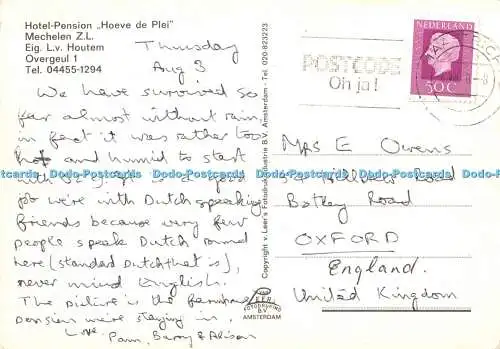 Hotel-Pension „Hoeve de Plei"
Mechelen Z.L.
Eig. L.v. Houtem
Overgeul 1
Tel. 04455-1294
Thursday
Aug 3
We have survived so
far almost without rain
in fact it was rather too
hot and humid to start
with
job we're with Dutch speaking
friends because very few
people speak Dutch round
here (standard Dutch that is),
never mind English.
The picture is the farmhouse
pension we're staying in.
Love
Pam, Barry & Alison
Copyright v. Leer's Fotodrukindustrie B.V. Amsterdam - Tel. 020-823223
VAN LEER
FOTODRUKIND.
B.V.
AMSTERDAM
POSTCODE
Oh ja!
NEDERLAND
50 C
Mrs E Owens
Road
Botley Road
OXFORD
England.
United Kingdom
Dodo-Postcards Dodo-Postcards Dodo-Postcards Dodo-Postcards Dodo-Postcards